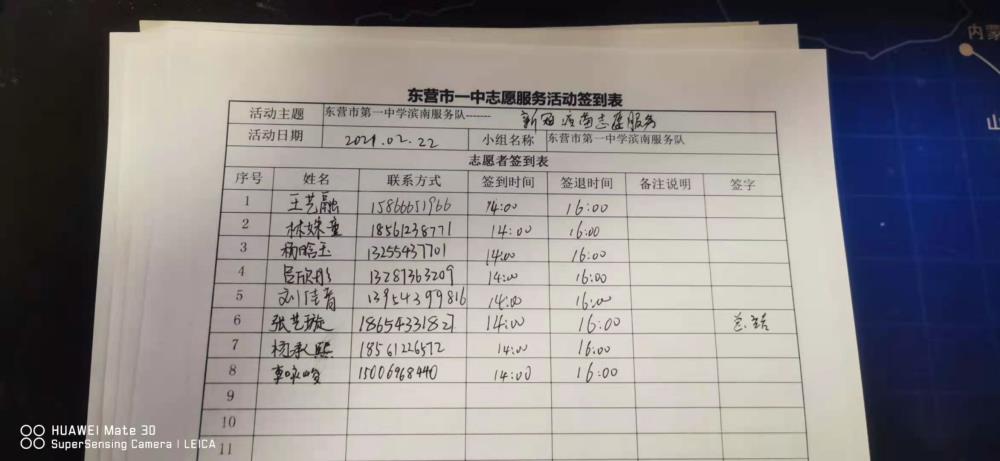 东营市一中志愿服务活动签到表
活动主题 东营市第一中学滨南服务队------- 新冠 志愿服务
活动日期 2021.02.22 小组名称 东营市第一中学滨南服务队
志愿者签到表
序号 姓名 联系方式 签到时间 签退时间 备注说明 签字
1 王艺融 15866651966 14:00 16:00
2 林姝童 18561238771 14:00 16:00
3 杨晗玉 13255437701 14:00 16:00
4 吕欣彤 13287363209 14:00 16:00
5 刘佳音 13954399816 14:00 16:00
6 张艺璇 18654331827 14:00 16:00
7 杨承熙 18561226572 14:00 16:00
8 15006968440 14:00 16:00
9
10
11
内蒙
HUAWEI Mate 30
SuperSensing Camera | LEICA